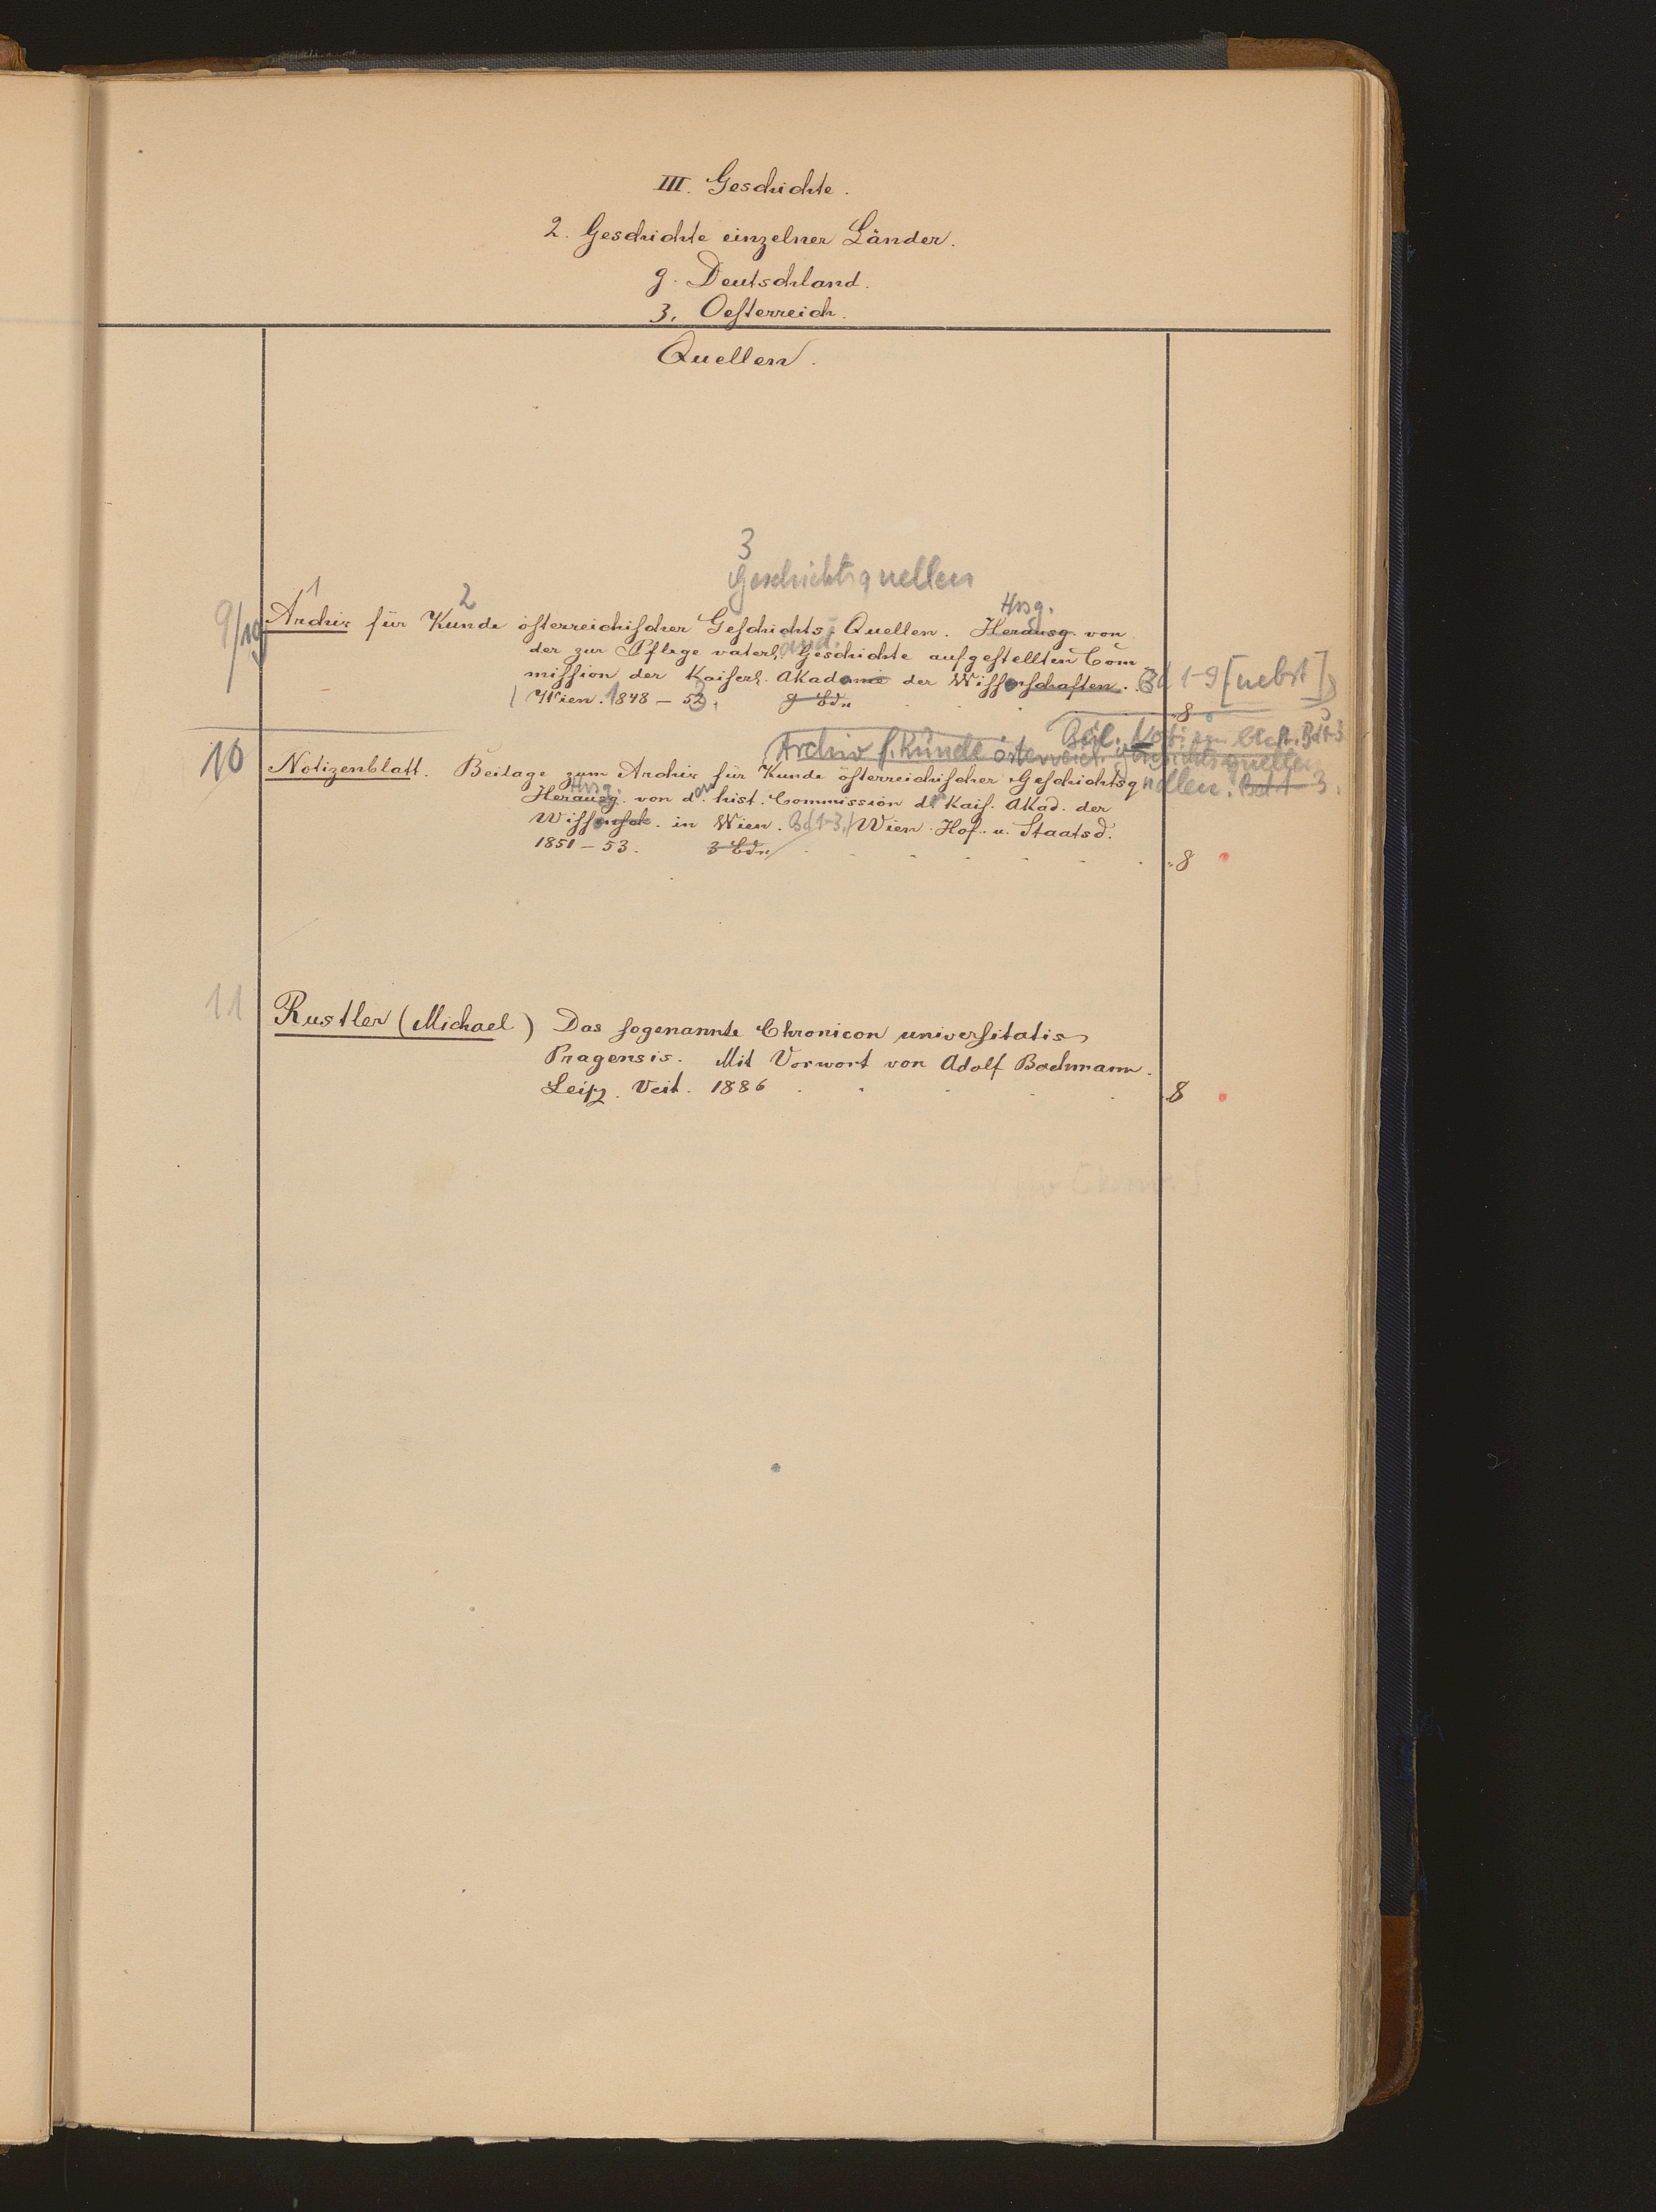 III. Geschichte.
2. Geschichte einzelner Länder.
g. Deutschland.
3. Oesterreich.
Quellen.
3
Geschichtsquellen
1 2 Hrsg.
9/10 Archiv für Kunde österreichischer Geschichts-Quellen. Herausg. von
der zur Pflege vaterl. Geschichte aufgestellten Com-
mission der Kaiserl. Akademie der Wissenschaften. Bd 1-9 [nebst]
Wien. 1848-53. 9 Bdn 8
Beil. Notizenblatt. Bd 1-3
Archiv f. Kunde österreich. Geschichtsquellen
10 Notizenblatt. Beilage zum Archiv für Kunde österreichischer Geschichtsquellen. Bd 1-3.
Hrsg.
Herausg. von d. hist. Commission d. Kais. Akad. der
Wissensch. in Wien. Bd 1-3. Wien. Hof- u. Staatsd.
1851-53. 3 Bdn 8
11 Rustler (Michael) Das sogenannte Chronicon universitatis
Pragensis. Mit Vorwort von Adolf Bachmann.
Leipz. Veit. 1886 8